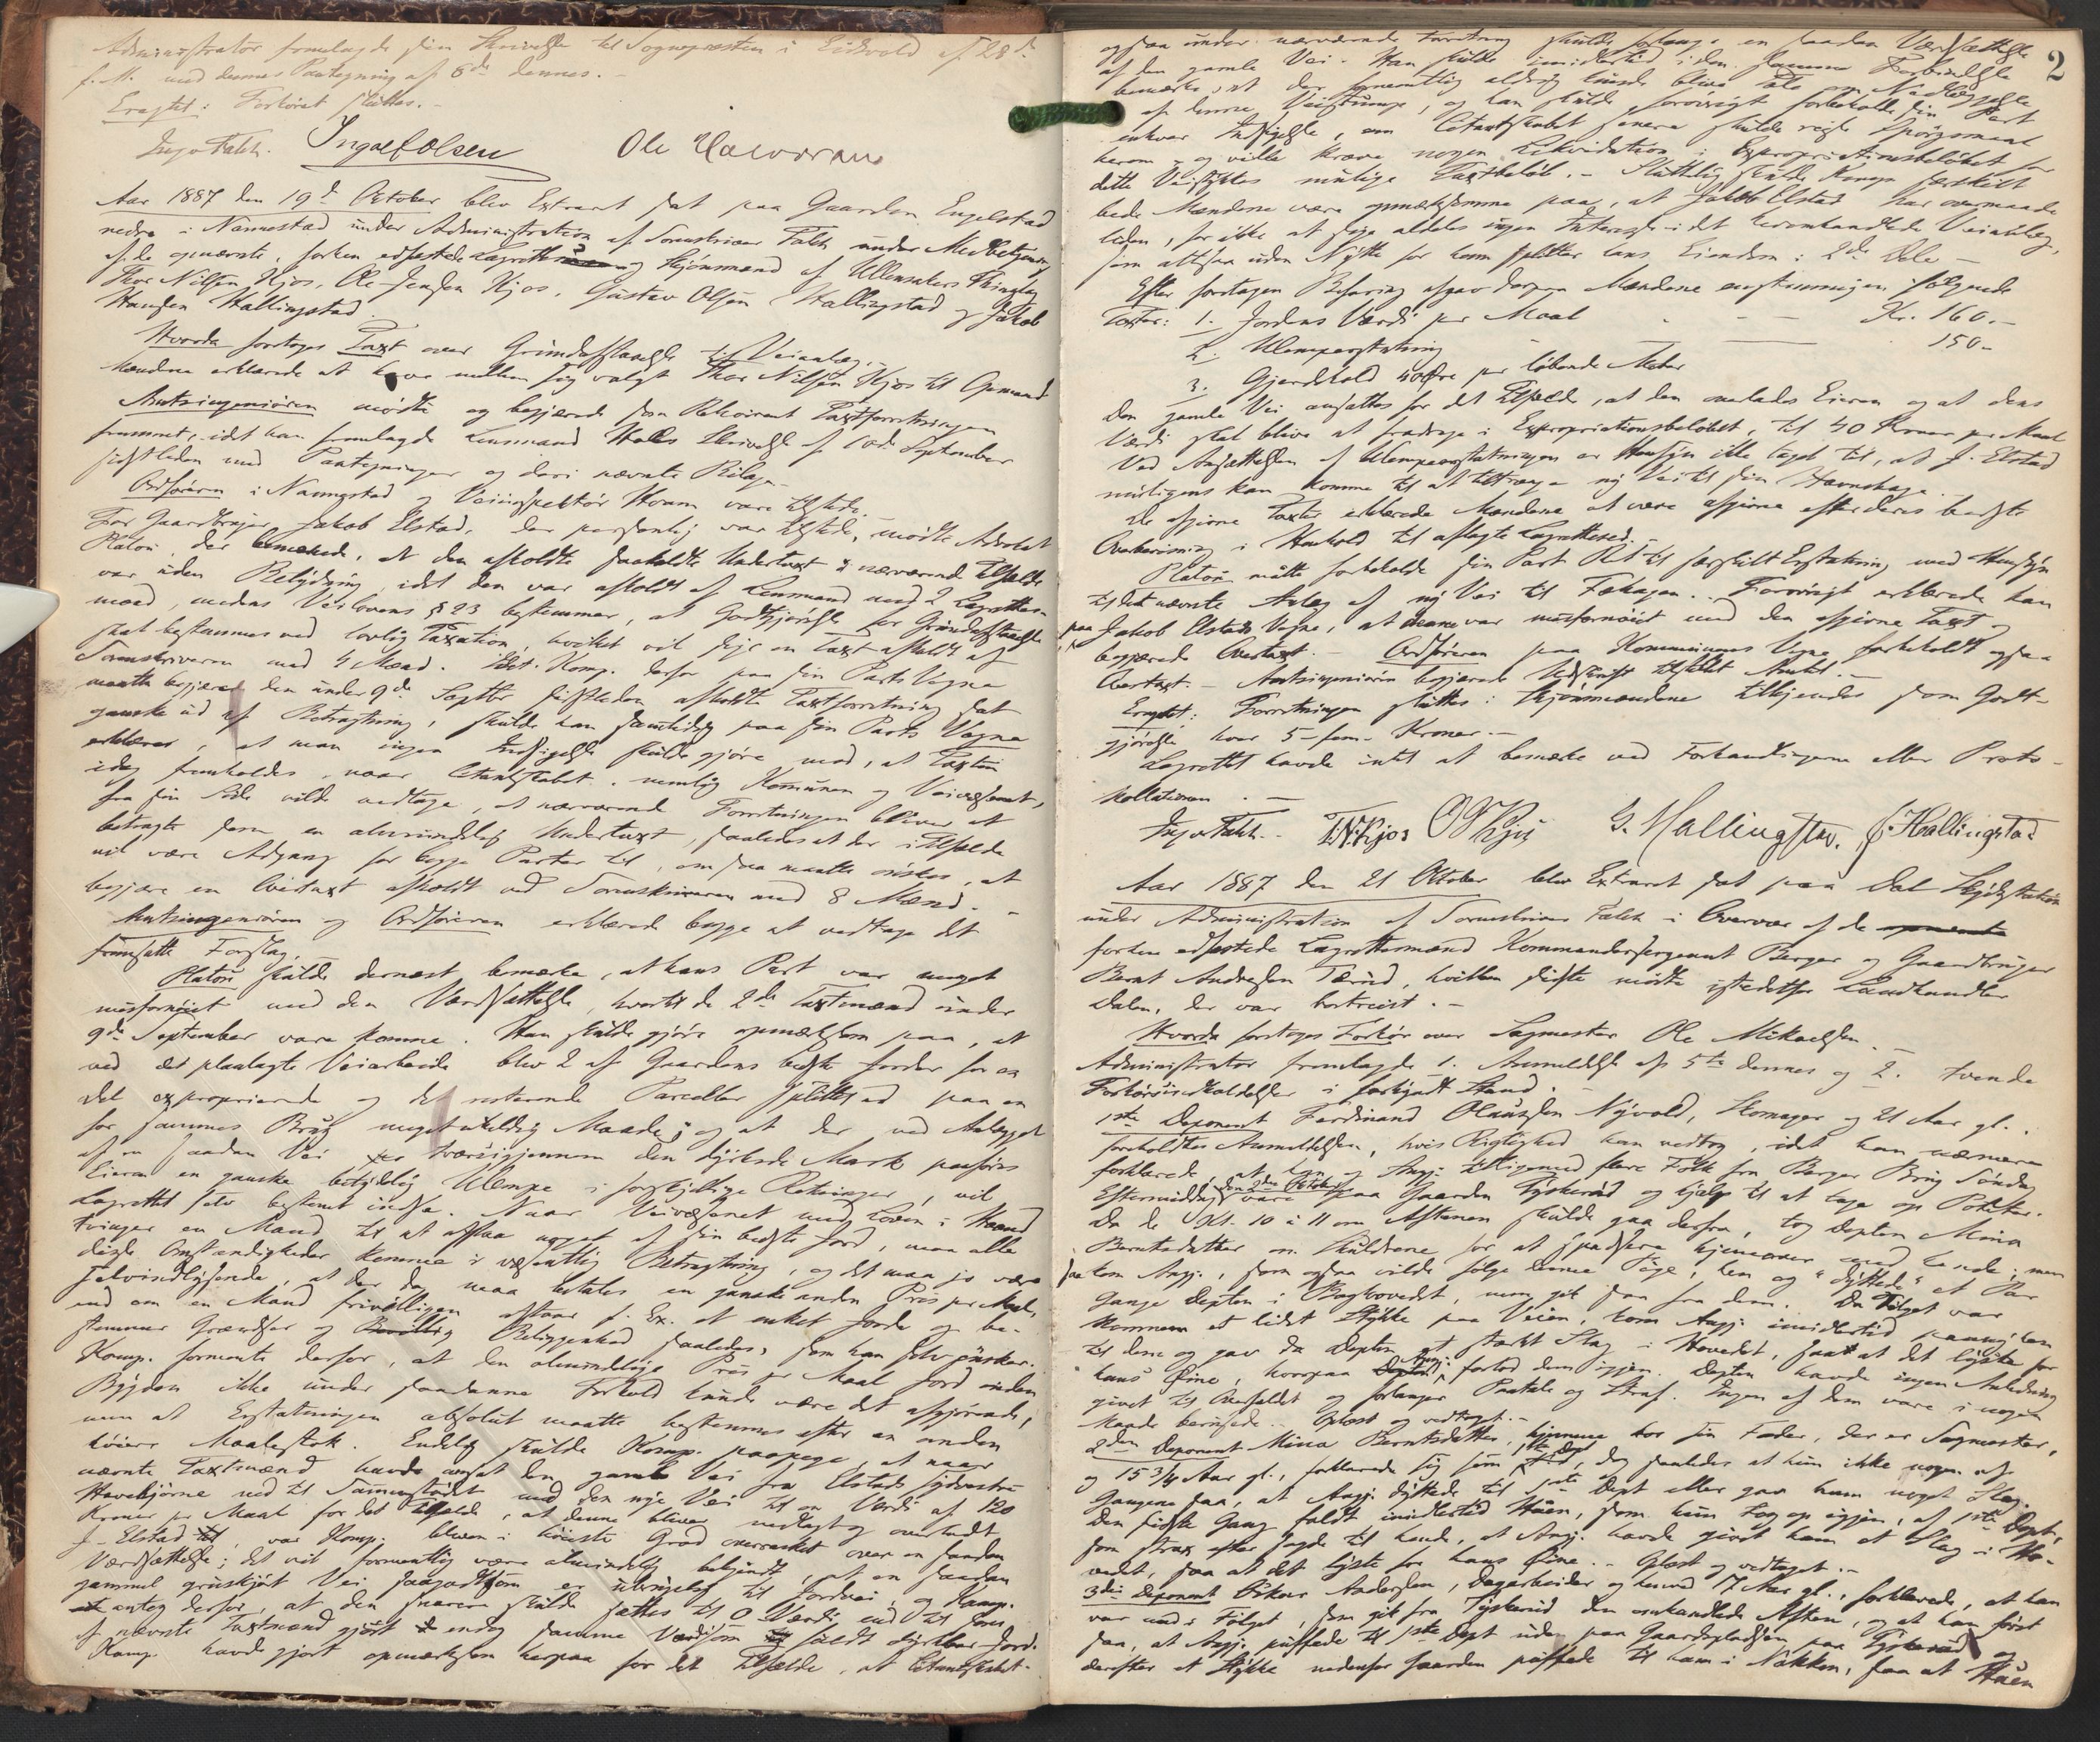 Administrator fremlagde sin Skrivelse til Sognepresten i Eidsvold af 28de
f. M. med dennes Paategning af 8de dennes.
Eragtet: Forhöret sluttes.
Ingv Falch. Ingolf Olsen Ole Halvorsen
Aar 1887 den 19de October blev Extraret sat paa Gaarden Engelstad
nedre i Nannestad under Administration af Sorenskriver Falch under Medbetjening
af de opnævnte, forhen edfæstede Lagrettes og Skjönsmænd af Ullensakers Thinglag
Thor Nilsen Kjos, Ole Jensen Kjos, Gustav Olsen Hallingstad og Jakob
Hansen Hallingstad.
Hvorda foretoges Taxt over Grundafstaaelse til Veianlæg.
Mændene erklærede at have mellem sig valgt Thor Nilsen Kjos til Opmand
Amtsingeniören mödte og begjærede som Rekvirent Taxtforretningen
fremmet, idet han fremlagde Lensmand Holls Skrivelse af 10de September
sidstleden med Paategninger og deri nævnte Bilage.
Ordföreren i Nannestad og Veiinspektör Houm vare tilstede.
For Gaardbruger Jakob Elstad, der personlig var tilstede, mödte Advokat
Platou, der bemærkede, at den afholdte saakaldte Undertaxt i nærværende Tilfælde
var uden Betydning, idet den var afholdt af Lensmand med 2 Lagrettes-
mænd, medens Veilovens § 23 bestemmer, at Godtgjörelse for Grundafstaaelse
skal bestemmes ved lovlig Taxation, hvilket vil sige en Taxt afholdt af
Sorenskriveren med 4 Mænd. Idet Komp. derfor paa sin Parts Vegne
maatte begjære den under 9de Septbr sidstleden afholdte Taxtforretning sat
ganske ud af Betragtning, skulde han samtidig paa sin Parts Vegne
erklære, at man ingen Indsigelse skulde gjöre mod, at Taxten
idag fremholdes, naar Citantskabet, nemlig Kommunen og Veivæsenet,
fra sin Side vilde vedtage, at nærværende Forretningen bliver at
betragte som en almindelig Undertaxt, saaledes at der i Tilfælde
vil være Adgang for begge Parter til, om saa maatte önskes, at
begjære en Overtaxt afholdt ved Sorenskriveren med 8 Mænd.
Amtsingeniören og Ordföreren erklærede begge at vedtage det
fremsatte Forslag.
Platou skulde dernæst bemærke, at hans Part var meget
misfornöiet med den Værdsættelse, hvortil de 2de Taxtmænd under
9de September vare komne. Han skulde gjöre opmærksom paa, at
ved det planlagte Veiarbeide blev 2 af Gaardens bedste Jorder for en
Del exproprierede og det resterende Parceller splittet ud paa en
for sammes Brug meget uheldig Maade; og at der ved Anlægget
af en saadan Vei tværsigjennem den dyrkede Mark paaföres
Eieren en ganske betydelig Ulempe i forskjellige Retninger, vil
Lagrettet selv bestemt indse. Naar Veivæsenet med Loven i Haand
tvinger en Mand til at afstaa noget af sin bedste Jord, maa alle
disse Omstændigheder komme i væsentlig Betragtning, og det maa jo være
selvindlysende, at der da maa betales en ganske anden Pris per Maal,
end om en Mand frivilligen afstaar f. Ex. et enkelt Jorde og be-
stemmer Grændser og Beliggenhed saaledes, som han selv önsker.
Komp. formente derfor, at den almindelige Pris per Maal Jord inden
Bygden ikke under saadanne Forhold kunde være det afgjörende,
men at Erstatningen absolut maatte bestemmes efter en anden
höiere Maalestok. Endelig skulde Komp. paapege, at naar
nævnte Taxtmænd havde ansat den gamle Vei fra Elstads sydvestre
Havehjörne ned til Sammenstödet med den nye Vei til en Værdi af 120
Kroner pr Maal for det Tilfælde, at denne bliver nedlagt og overladt
J. Elstad, var Komp. bleven i höieste Grad overrasket over en saadan
Værdsættelse; det vil formentlig være almindelig bekjendt, at en saadan
gammel gruskjört Vei saagodtsom er ubrugelig til Jordvei, og Komp.
antog derfor, at den snarere skulde sættes til 0 Værdi end til som
af nævnte Taxtmænd gjort endog samme Værdi som fuldt dyrkbar Jord.
Komp. havde gjort opmærksom herpaa for det Tilfælde, at Citantskabet
2
ogsaa under nærværende Forretning skulde forlange en saadan Værdsættelse
af den gamle Vei. Han skulde imidlertid i den samme Forbindelse
bemærke, at der formentlig aldrig kunde blive Tale om Nedlæggelse
af denne Veistump, og han skulde forövrigt forbeholde sin Part
enhver Indsigelse, om Citantskabet senere skulde reise Spörgsmaal
herom og ville kræve nogen Likvidation i Expropriationsbelöbet for
dette Veistykkes mulige Taxtbelöb. Sluttelig skulde Komp. særskilt
bede Mændene være opmærksomme paa, at Jakob Elstad har overmaade
liden, for ikke at sige aldeles ingen Interesse i det heromhandlede Veianlæg,
som altsaa uden Nytte for ham splitter hans Eiendom i 2de Dele.
Efter foretagen Befaring afgav derpaa Mændene enstemmigen følgende
Taxter: 1. Jordens Værdi per Maal Kr. 160.-
2. Ulempeerstatning 150-
3. Gjerdehold 40 Øre per löbende Meter
Den gamle Vei ansattes for det Tilfælde, at den overlades Eieren og at dens
Værdi skal blive at fradrage i Expropriationsbelöbet, til 40 Kroner per Maal
Ved Ansættelsen af Ulempeerstatningen er Hensyn ikke taget til, at J. Elstad
muligens kan komme til at tiltrænge ny Vei til sin Havnehage.
De afgivne Taxter erklærede Mændene at være afgivne efter deres bedste
Overbevisning i Henhold til aflagte Lagrettesed.
Platou maatte forbeholde sin Part Ret til særskilt Erstatning med Hensyn
til det nævnte Anlæg af ny Vei til Fæhagen. Forövrigt erklærede han
paa Jakob Elstads Vegne, at denne var misfornöiet med den afgivne Taxt og
begjærede Overtaxt. Ordföreren paa Kommunens Vegne forbeholdt ogsaa
Overtaxt. Amtsingeniören begjærede Udskrift tilstillet Amtet.
Eragtet: Forretningen sluttes: Skjönsmændene tilkjendes som Godt-
gjörelse hver 5 - fem - Kroner.
Lagrettet havde intet at bemærke ved Forhandlingerne eller Proto-
kollationen.
Ingv Falch. T.N.Kjos O J Kjos G. Hallingstad. J. Hallingstad
Aar 1887 den 21 Oktober blev Extraret sat paa Dal Skydsstation
under Administration af Sorenskriver Falch i Overvær af de
forhen edfæstede Lagrettesmænd Kommandersergeant Berger og Gaardbruger
Bernt Andresen Tærud, hvilken sidste mödte istedetfor Landhandler
Dalen, der var bortreist.
Hvorda foretoges Forhör over Sagmester Ole Mikaelsen.
Administrator fremlagde 1. Anmeldelse af 5te dennes og 2. tvende
Forhörsindkaldelser i forkyndt Stand.
1ste Deponent Ferdinand Olausen Nyvold, Skomager og 21 Aar gl.,
foreholdtes Anmeldelsen, hvis Rigtighed han vedtog, idet han nærmere
forklarede, at han og Angj. tilligemed flere Folk fra Berger Brug Söndag
Eftermiddag den 2den Oktober vare paa Gaarden Tyskerud og hjalp til at tage op Poteter.
Da de Kl. 10 à 11 om Aftenen skulde gaa derfra, tog Depten Mina
Berntsdatter om Skuldrene for at spadsere hjemover med hende; men
saa kom Angj., som ogsaa vilde fölge denne Pige, hen og "dyttede" et Par
Gange Depten i Baghovedet, men gik saa fra dem. Da Fölget var
kommen et lidet Stykke paa Veien, kom Angj. imidlertid paany hen
til dem og gav da Depten et stærkt Slag i Hovedet, saa at det lyste for
hans Öine, hvorpaa Angj. forlod dem igjen. Depten havde ingen Anledning
givet til Overfaldet og forlanger Paatale og Straf. Ingen af dem vare i nogen
Maade berusede. Oplæst og vedtaget.
2den Deponent Mina Berntsdatter, hjemme hos sin Fader, der er Sagmester,
og 15 3/4 Aar gl., forklarede sig som 1ste Dept, dog saaledes at hun ikke nogen af
Gangene saa, at Angj. dyttede til 1ste Dept eller gav ham noget Slag.
Den sidste Gang faldt imidlertid Huen, som hun tog op igjen, af 1ste Dept,
som strax efter sagde til hende, at Angj. havde givet ham et Slag i Ho-
vedet, saa at det lyste for hans Öine. Oplæst og vedtaget.
3die Deponent Oskar Andersen, Dagarbeider og henved 17 Aar gl., forklarede, at han
var med i Fölget, som gik fra Tyskerud den omhandlede Aften, og at han först
saa, at Angj. puffede til 1ste Dept uden paa Gaardspladsen paa Tyskerud og
derefter et Stykke nedenfor Gaarden puffede til ham i Nakken, saa at Huen